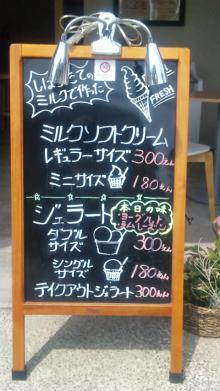 しぼりたての
ミルクで作った
FRESH
ミルクソフトクリーム
レギュラーサイズ 300えん
ミニサイズ 180えん
ジェラート
本日の味
ヨーグルト
ダブル
サイズ 300えん
シングル
サイズ 180えん
テイクアウトジェラート 300えん